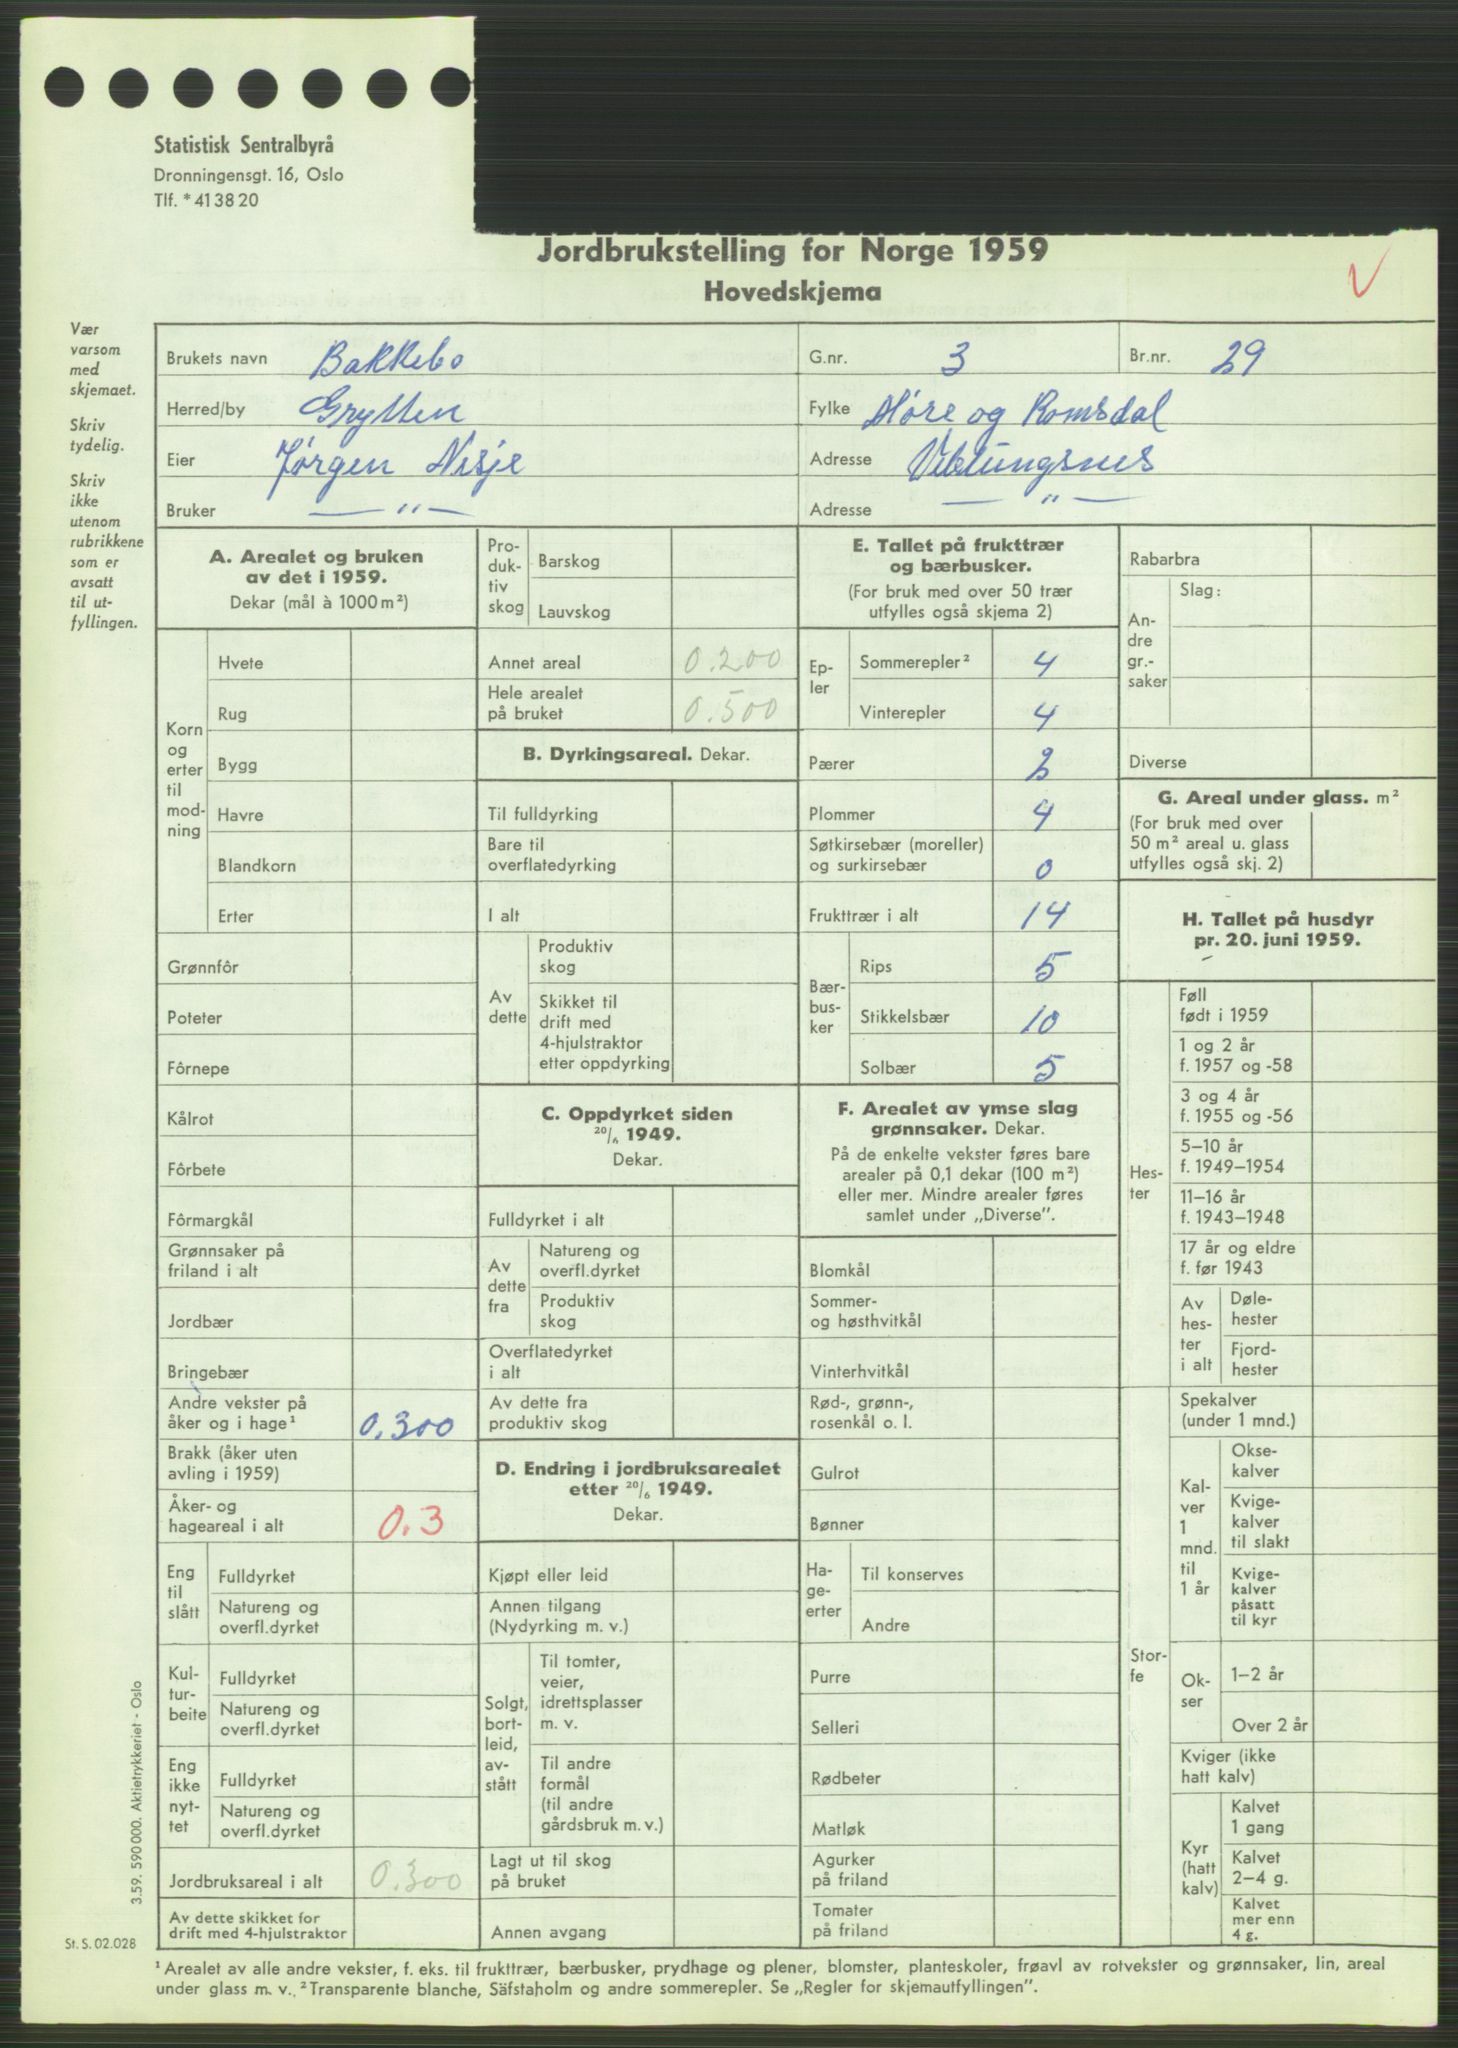 Statistisk Sentralbyrå
Dronningensgt. 16, Oslo
Tlf. * 41 38 20
Jordbrukstelling for Norge 1959
Hovedskjema
Vær
varsom
med
skjemaet.
Skriv
tydelig.
Skriv
ikke
utenom
rubrikkene
som er
avsatt
til ut-
fyllingen.
Brukets navn Bakkebo G.nr. 3 Br.nr. 29
Herred/by Grytten Fylke Møre og Romsdal
Eier Jørgen Nesje Adresse Veblungsnes
Bruker — " — Adresse — " —
A. Arealet og bruken
av det i 1959.
Dekar (mål à 1000 m²)
Korn
og
erter
til
mod-
ning
Hvete
Rug
Bygg
Havre
Blandkorn
Erter
Grønnfôr
Poteter
Fôrnepe
Kålrot
Fôrbete
Fôrmargkål
Grønnsaker på
friland i alt
Jordbær
Bringebær
Andre vekster på
åker og i hage¹ 0.300
Brakk (åker uten
avling i 1959)
Åker- og
hageareal i alt 0.3
Eng
til
slått
Fulldyrket
Natureng og
overfl.dyrket
Kul-
tur-
beite
Fulldyrket
Natureng og
overfl.dyrket
Eng
ikke
nyt-
tet
Fulldyrket
Natureng og
overfl.dyrket
Jordbruksareal i alt 0.300
Av dette skikket for
drift med 4-hjulstraktor
Pro-
duk-
tiv
skog
Barskog
Lauvskog
Annet areal 0.200
Hele arealet
på bruket 0.500
B. Dyrkingsareal. Dekar.
Til fulldyrking
Bare til
overflatedyrking
I alt
Av
dette
Produktiv
skog
Skikket til
drift med
4-hjulstraktor
etter oppdyrking
C. Oppdyrket siden
20/6 1949.
Dekar.
Fulldyrket i alt
Av
dette
fra
Natureng og
overfl.dyrket
Produktiv
skog
Overflatedyrket
i alt
Av dette fra
produktiv skog
D. Endring i jordbruksarealet
etter 20/6 1949.
Dekar.
Kjøpt eller leid
Annen tilgang
(Nydyrking m. v.)
Solgt,
bort-
leid,
av-
stått
Til tomter,
veier,
idrettsplasser
m. v.
Til andre
formål
(til andre
gårdsbruk m. v.)
Lagt ut til skog
på bruket
Annen avgang
E. Tallet på frukttrær
og bærbusker.
(For bruk med over 50 trær
utfylles også skjema 2)
Ep-
ler
Sommerepler² 4
Vinterepler 4
Pærer 2
Plommer 4
Søtkirsebær (moreller)
og surkirsebær 0
Frukttrær i alt 14
Bær-
bus-
ker
Rips 5
Stikkelsbær 10
Solbær 5
F. Arealet av ymse slag
grønnsaker. Dekar.
På de enkelte vekster føres bare
arealer på 0,1 dekar (100 m²)
eller mer. Mindre arealer føres
samlet under „Diverse”.
Blomkål
Sommer-
og høsthvitkål
Vinterhvitkål
Rød-, grønn-,
rosenkål o. l.
Gulrot
Bønner
Ha-
ge-
erter
Til konserves
Andre
Purre
Selleri
Rødbeter
Matløk
Agurker
på friland
Tomater
på friland
Rabarbra
An-
dre
gr.-
saker
Slag:
Diverse
G. Areal under glass. m²
(For bruk med over
50 m² areal u. glass
utfylles også skj. 2)
H. Tallet på husdyr
pr. 20. juni 1959.
Hes-
ter
Føll
født i 1959
1 og 2 år
f. 1957 og -58
3 og 4 år
f. 1955 og -56
5–10 år
f. 1949–1954
11–16 år
f. 1943–1948
17 år og eldre
f. før 1943
Av
hes-
ter
i alt
Døle-
hester
Fjord-
hester
Stor-
fe
Spekalver
(under 1 mnd.)
Kal-
ver
1
mnd.
til
1 år
Okse-
kalver
Kvige-
kalver
til slakt
Kvige-
kalver
påsatt
til kyr
Ok-
ser
1–2 år
Over 2 år
Kviger (ikke
hatt kalv)
Kyr
(hatt
kalv)
Kalvet
1 gang
Kalvet
2–4 g.
Kalvet
mer enn
4 g.
3.59. 590 000. Aktietrykkeriet - Oslo
St. S. 02.028
¹ Arealet av alle andre vekster, f. eks. til frukttrær, bærbusker, prydhage og plener, blomster, planteskoler, frøavl av rotvekster og grønnsaker, lin, areal
under glass m. v. ² Transparente blanche, Säfstaholm og andre sommerepler. Se „Regler for skjemautfyllingen”.